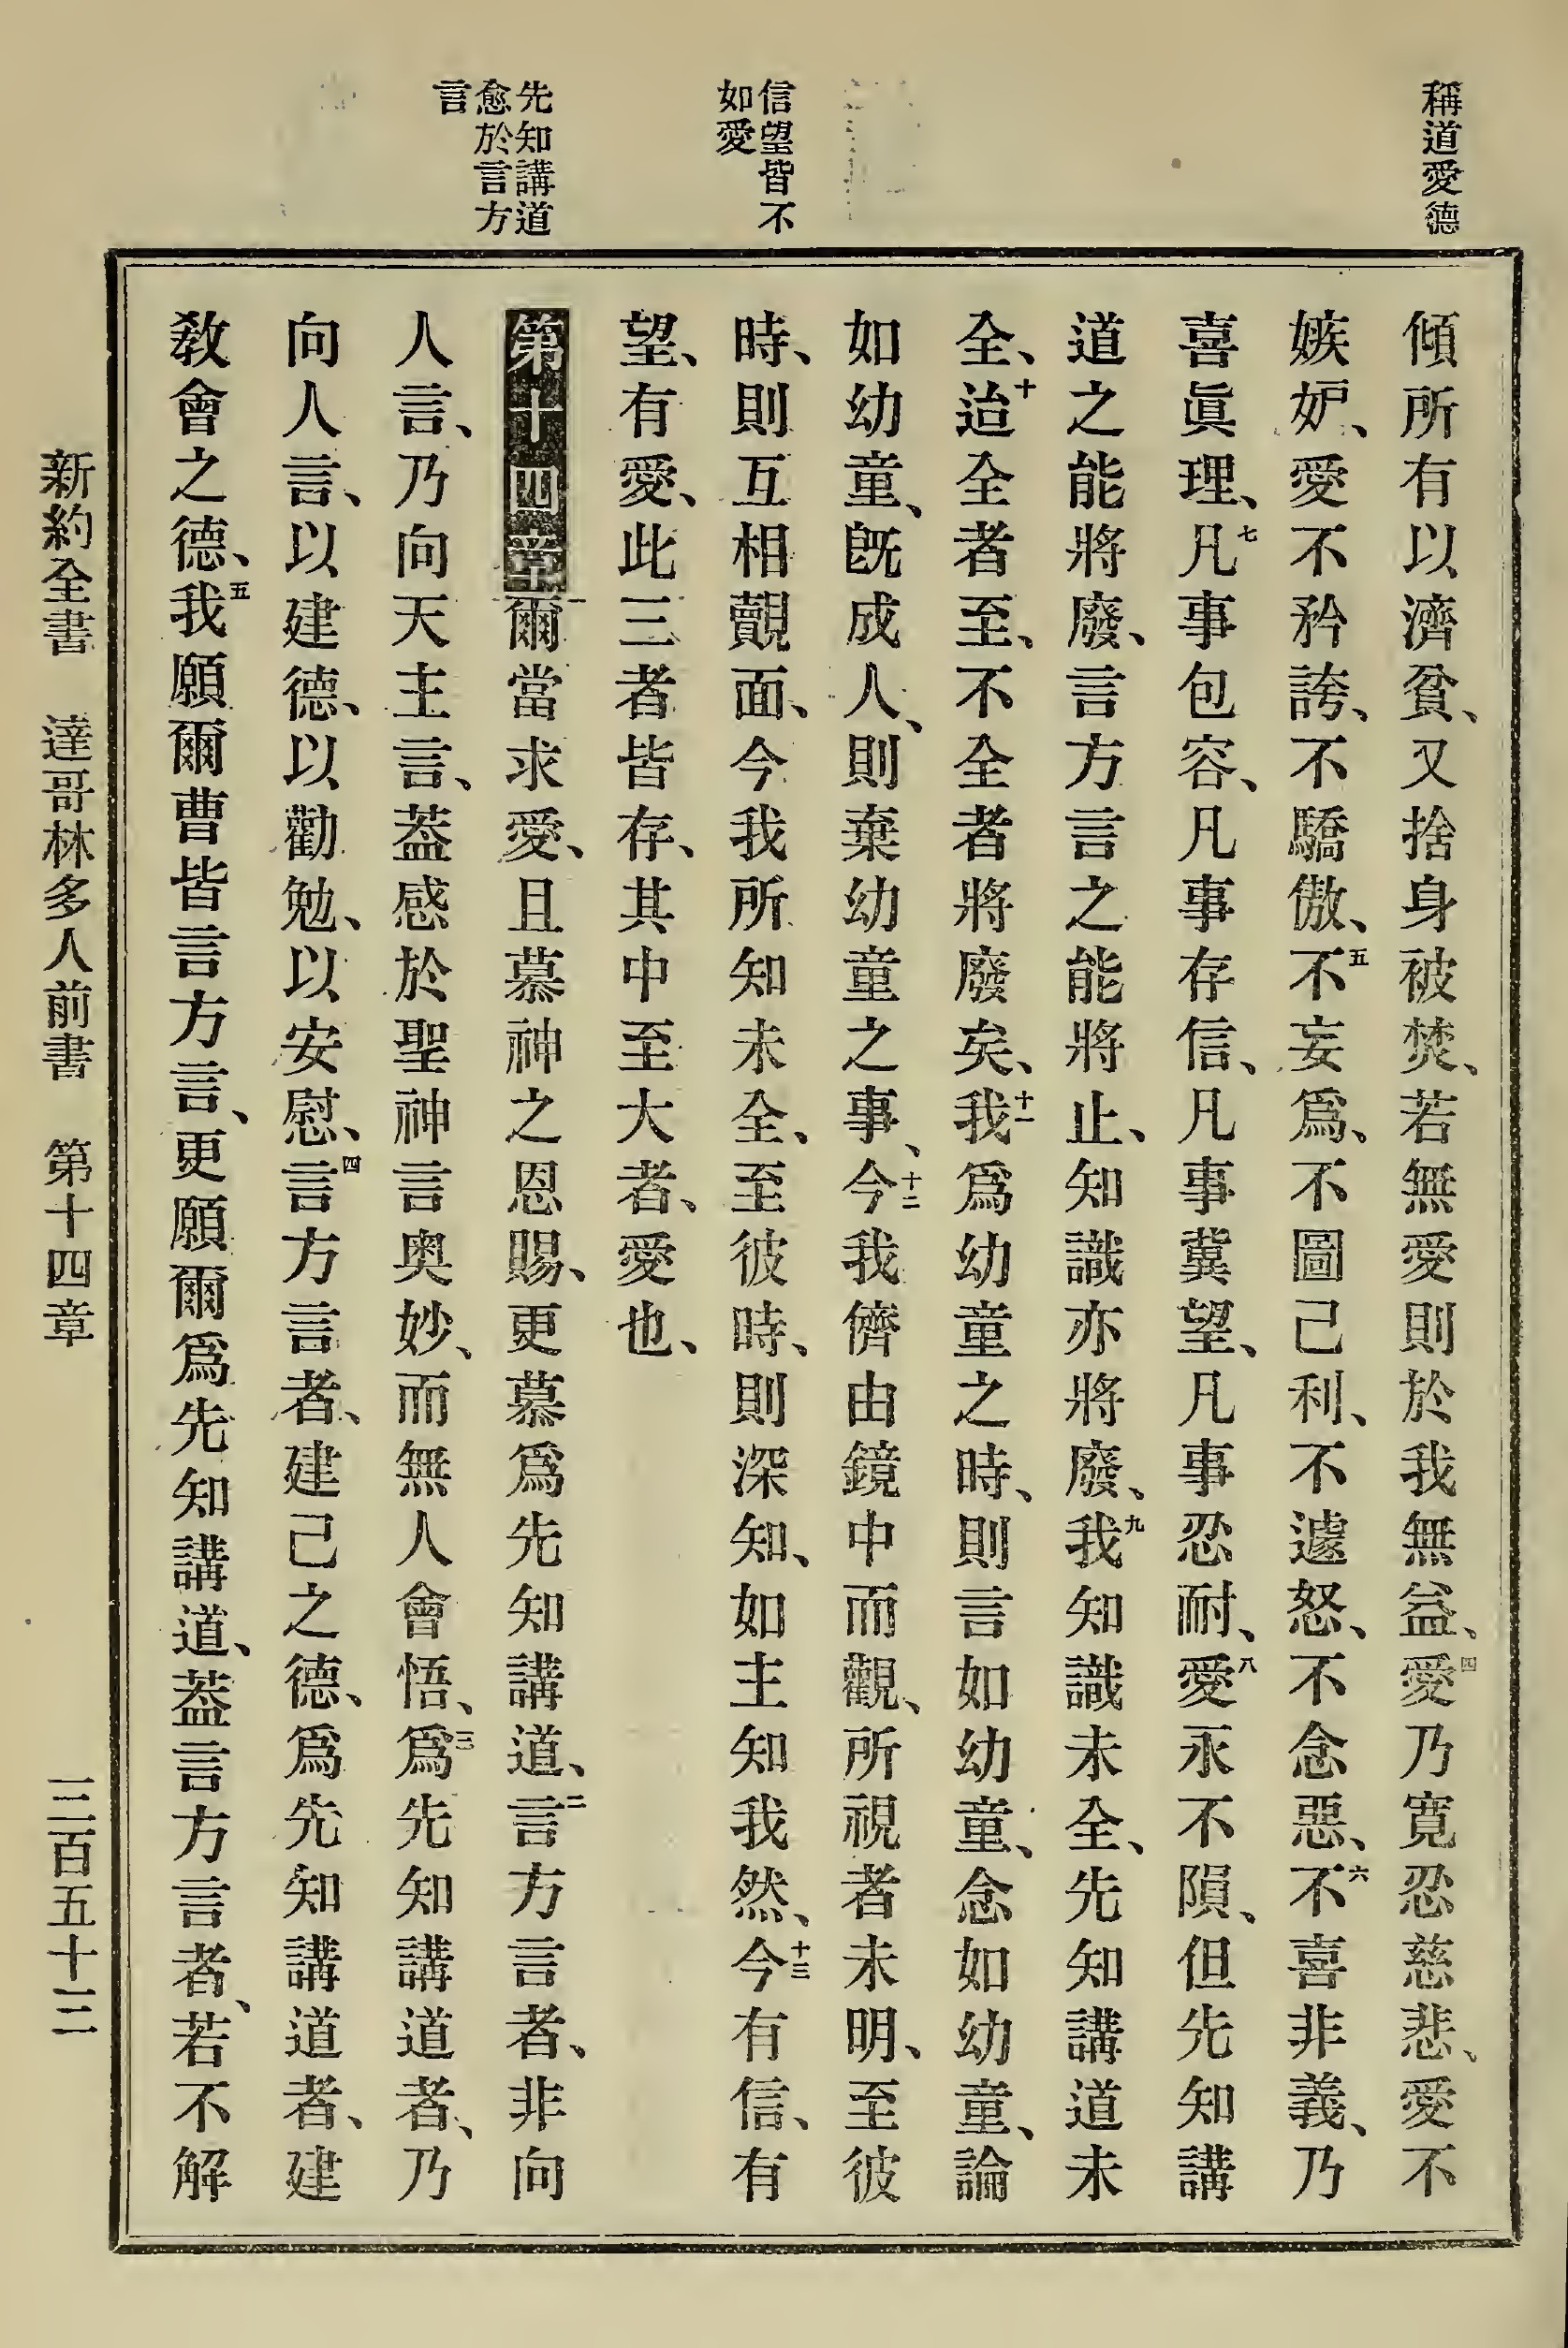 稱道愛德
信望皆不
如愛
先知講道
愈於言方
言
傾所有以濟貧、又捨身被焚、若無愛則於我無益、四愛乃寬忍慈悲、愛不
嫉妒、愛不矜誇、不驕傲、五不妄爲、不圖己利、不遽怒、不念惡、六不喜非義、乃
喜眞理、七凡事包容、凡事存信、凡事冀望、凡事忍耐、八愛永不隕、但先知講
道之能將廢、言方言之能將止、知識亦將廢、九我知識未全、先知講道未
全、十迨全者至、不全者將廢矣、十一我爲幼童之時、則言如幼童、念如幼童、論
如幼童、旣成人、則棄幼童之事、十二今我儕由鏡中而觀、所視者未明、至彼
時、則互相覿面、今我所知未全、至彼時、則深知、如主知我然、十三今有信、有
望、有愛、此三者皆存、其中至大者、愛也、
第十四章一爾當求愛、且慕神之恩賜、更慕爲先知講道、二言方言者、非向
人言、乃向天主言、葢感於聖神言奧妙、而無人會悟、三爲先知講道者、乃
向人言、以建德、以勸勉、以安慰、四言方言者、建己之德、爲先知講道者、建
敎會之德、五我願爾曹皆言方言、更願爾爲先知講道、葢言方言者、若不解
新約全書 達哥林多人前書 第十四章 三百五十三